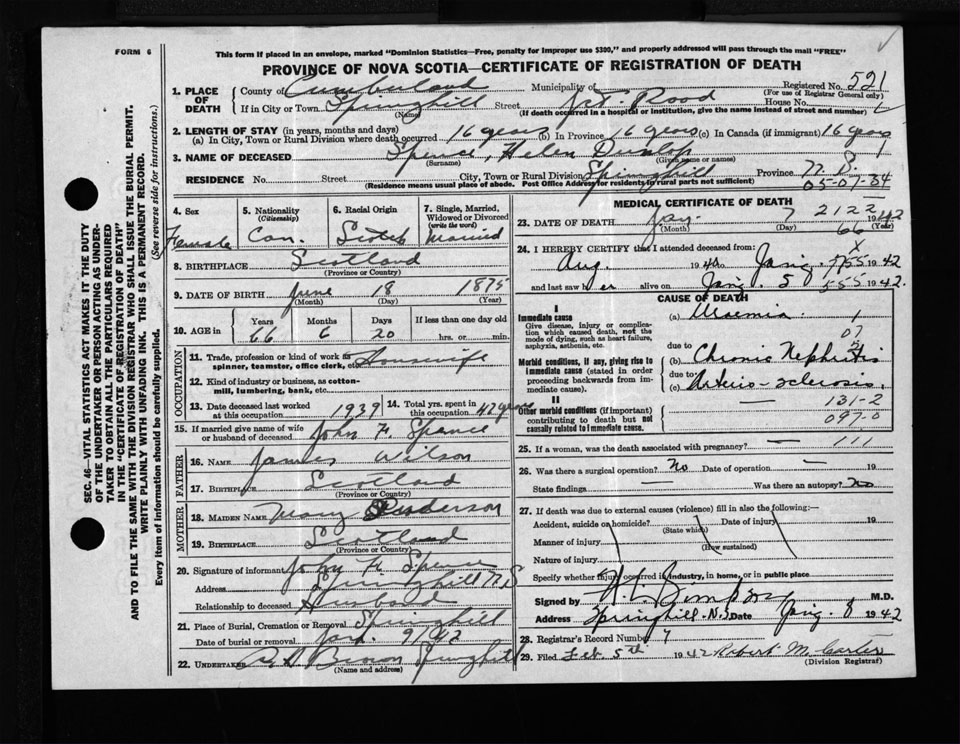 FORM 6
This form if placed in an envelope, marked "Dominion Statistics—Free, penalty for improper use $300," and properly addressed will pass through the mail "FREE"
PROVINCE OF NOVA SCOTIA—CERTIFICATE OF REGISTRATION OF DEATH
Registered No. 521
(For use of Registrar General only)
1. PLACE OF DEATH
County of Cumberland Municipality of
If in City or Town Springhill Street Road House No.
(Name) (If death occurred in a hospital or institution, give the name instead of street and number)
2. LENGTH OF STAY (in years, months and days)
(a) In City, Town or Rural Division where death occurred 16 years (b) In Province 16 years (c) In Canada (if immigrant) 16 years
3. NAME OF DECEASED Spence, Helen Dunlop
(Surname) (Given name or names)
RESIDENCE No. Street City, Town or Rural Division Springhill Province N.S.
(Residence means usual place of abode. Post Office Address for residents in rural parts not sufficient) 05-07-84
4. Sex Female
5. Nationality (Citizenship) Can.
6. Racial Origin
7. Single, Married, Widowed or Divorced (write the word) Married
8. BIRTHPLACE Scotland
(Province or Country)
9. DATE OF BIRTH June 18 1875
(Month) (Day) (Year)
10. AGE in Years Months Days If less than one day old
66 6 20 hrs. or min.
OCCUPATION
11. Trade, profession or kind of work as spinner, teamster, office clerk, etc. Housewife
12. Kind of industry or business, as cotton-mill, lumbering, bank, etc.
13. Date deceased last worked at this occupation 1939
14. Total yrs. spent in this occupation 42 years
15. If married give name of wife or husband of deceased John F. Spence
FATHER
16. NAME James Wilson
17. BIRTHPLACE Scotland
(Province or Country)
MOTHER
18. MAIDEN NAME Mary
19. BIRTHPLACE Scotland
(Province or Country)
20. Signature of informant John F. Spence
Address Springhill N.S
Relationship to deceased Husband
21. Place of Burial, Cremation or Removal Springhill
Date of burial or removal Jan. 9/42
22. UNDERTAKER Brown
(Name and address)
MEDICAL CERTIFICATE OF DEATH
23. DATE OF DEATH Jan. 7 2122 1942
(Month) (Day) 66 (Year)
24. I HEREBY CERTIFY that I attended deceased from:
Aug. 1940 to 1942
and last saw her alive on 5 555 1942.
CAUSE OF DEATH
I
Immediate cause
Give disease, injury or complication which caused death, not the mode of dying, such as heart failure, asphyxia, asthenia, etc.
(a) Uraemia 1
07
Morbid conditions, if any, giving rise to immediate cause (stated in order proceeding backwards from immediate cause).
due to
(b) Chronic Nephritis
due to
(c) Arterio-sclerosis.
II
Other morbid conditions (if important) contributing to death but not causally related to immediate cause.
131-2
097-0
25. If a woman, was the death associated with pregnancy? — 111
26. Was there a surgical operation? No Date of operation — 19
State findings — Was there an autopsy? no
27. If death was due to external causes (violence) fill in also the following:—
Accident, suicide or homicide? Date of injury 19
(State which)
Manner of injury
(How sustained)
Nature of injury
Specify whether injury occurred in industry, in home, or in public place
Signed by M.D.
Address Springhill N.S. Date 8 1942
28. Registrar's Record Number 7
29. Filed Feb 5th 1942 Robert M. Carter
(Division Registrar)
SEC. 46—VITAL STATISTICS ACT MAKES IT THE DUTY
OF THE UNDERTAKER OR PERSON ACTING AS UNDER-
TAKER TO OBTAIN ALL THE PARTICULARS REQUIRED
IN THE "CERTIFICATE OF REGISTRATION OF DEATH"
AND TO FILE THE SAME WITH THE DIVISION REGISTRAR WHO SHALL ISSUE THE BURIAL PERMIT.
WRITE PLAINLY WITH UNFADING INK. THIS IS A PERMANENT RECORD.
Every item of information should be carefully supplied. (See reverse side for instructions.)